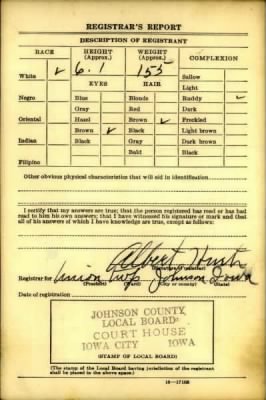 REGISTRAR'S REPORT
DESCRIPTION OF REGISTRANT
RACE HEIGHT (Approx.) WEIGHT (Approx.) COMPLEXION
White ✓ 6.1 155 Sallow
Light
EYES HAIR Ruddy ✓
Negro Blue Blonde Dark
Gray Red Freckled
Oriental Hazel Brown ✓ Light brown
Brown ✓ Black Dark brown
Indian Black Gray Black
Bald
Filipino
Other obvious physical characteristics that will aid in identification
I certify that my answers are true; that the person registered has read or has had
read to him his own answers; that I have witnessed his signature or mark and that
all of his answers of which I have knowledge are true, except as follows:
Albert
(Signature of registrar)
Registrar for Union Twp Johnson Iowa
(Precinct) (Ward) (City or county) (State)
Date of registration
JOHNSON COUNTY
LOCAL BOARD
COURT HOUSE
IOWA CITY IOWA
(STAMP OF LOCAL BOARD)
(The stamp of the Local Board having jurisdiction of the registrant
shall be placed in the above space.)
16—17105